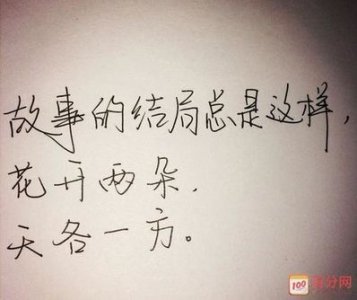 故事的结局总是这样，
花开两朵．
天各一方。
100
百分网